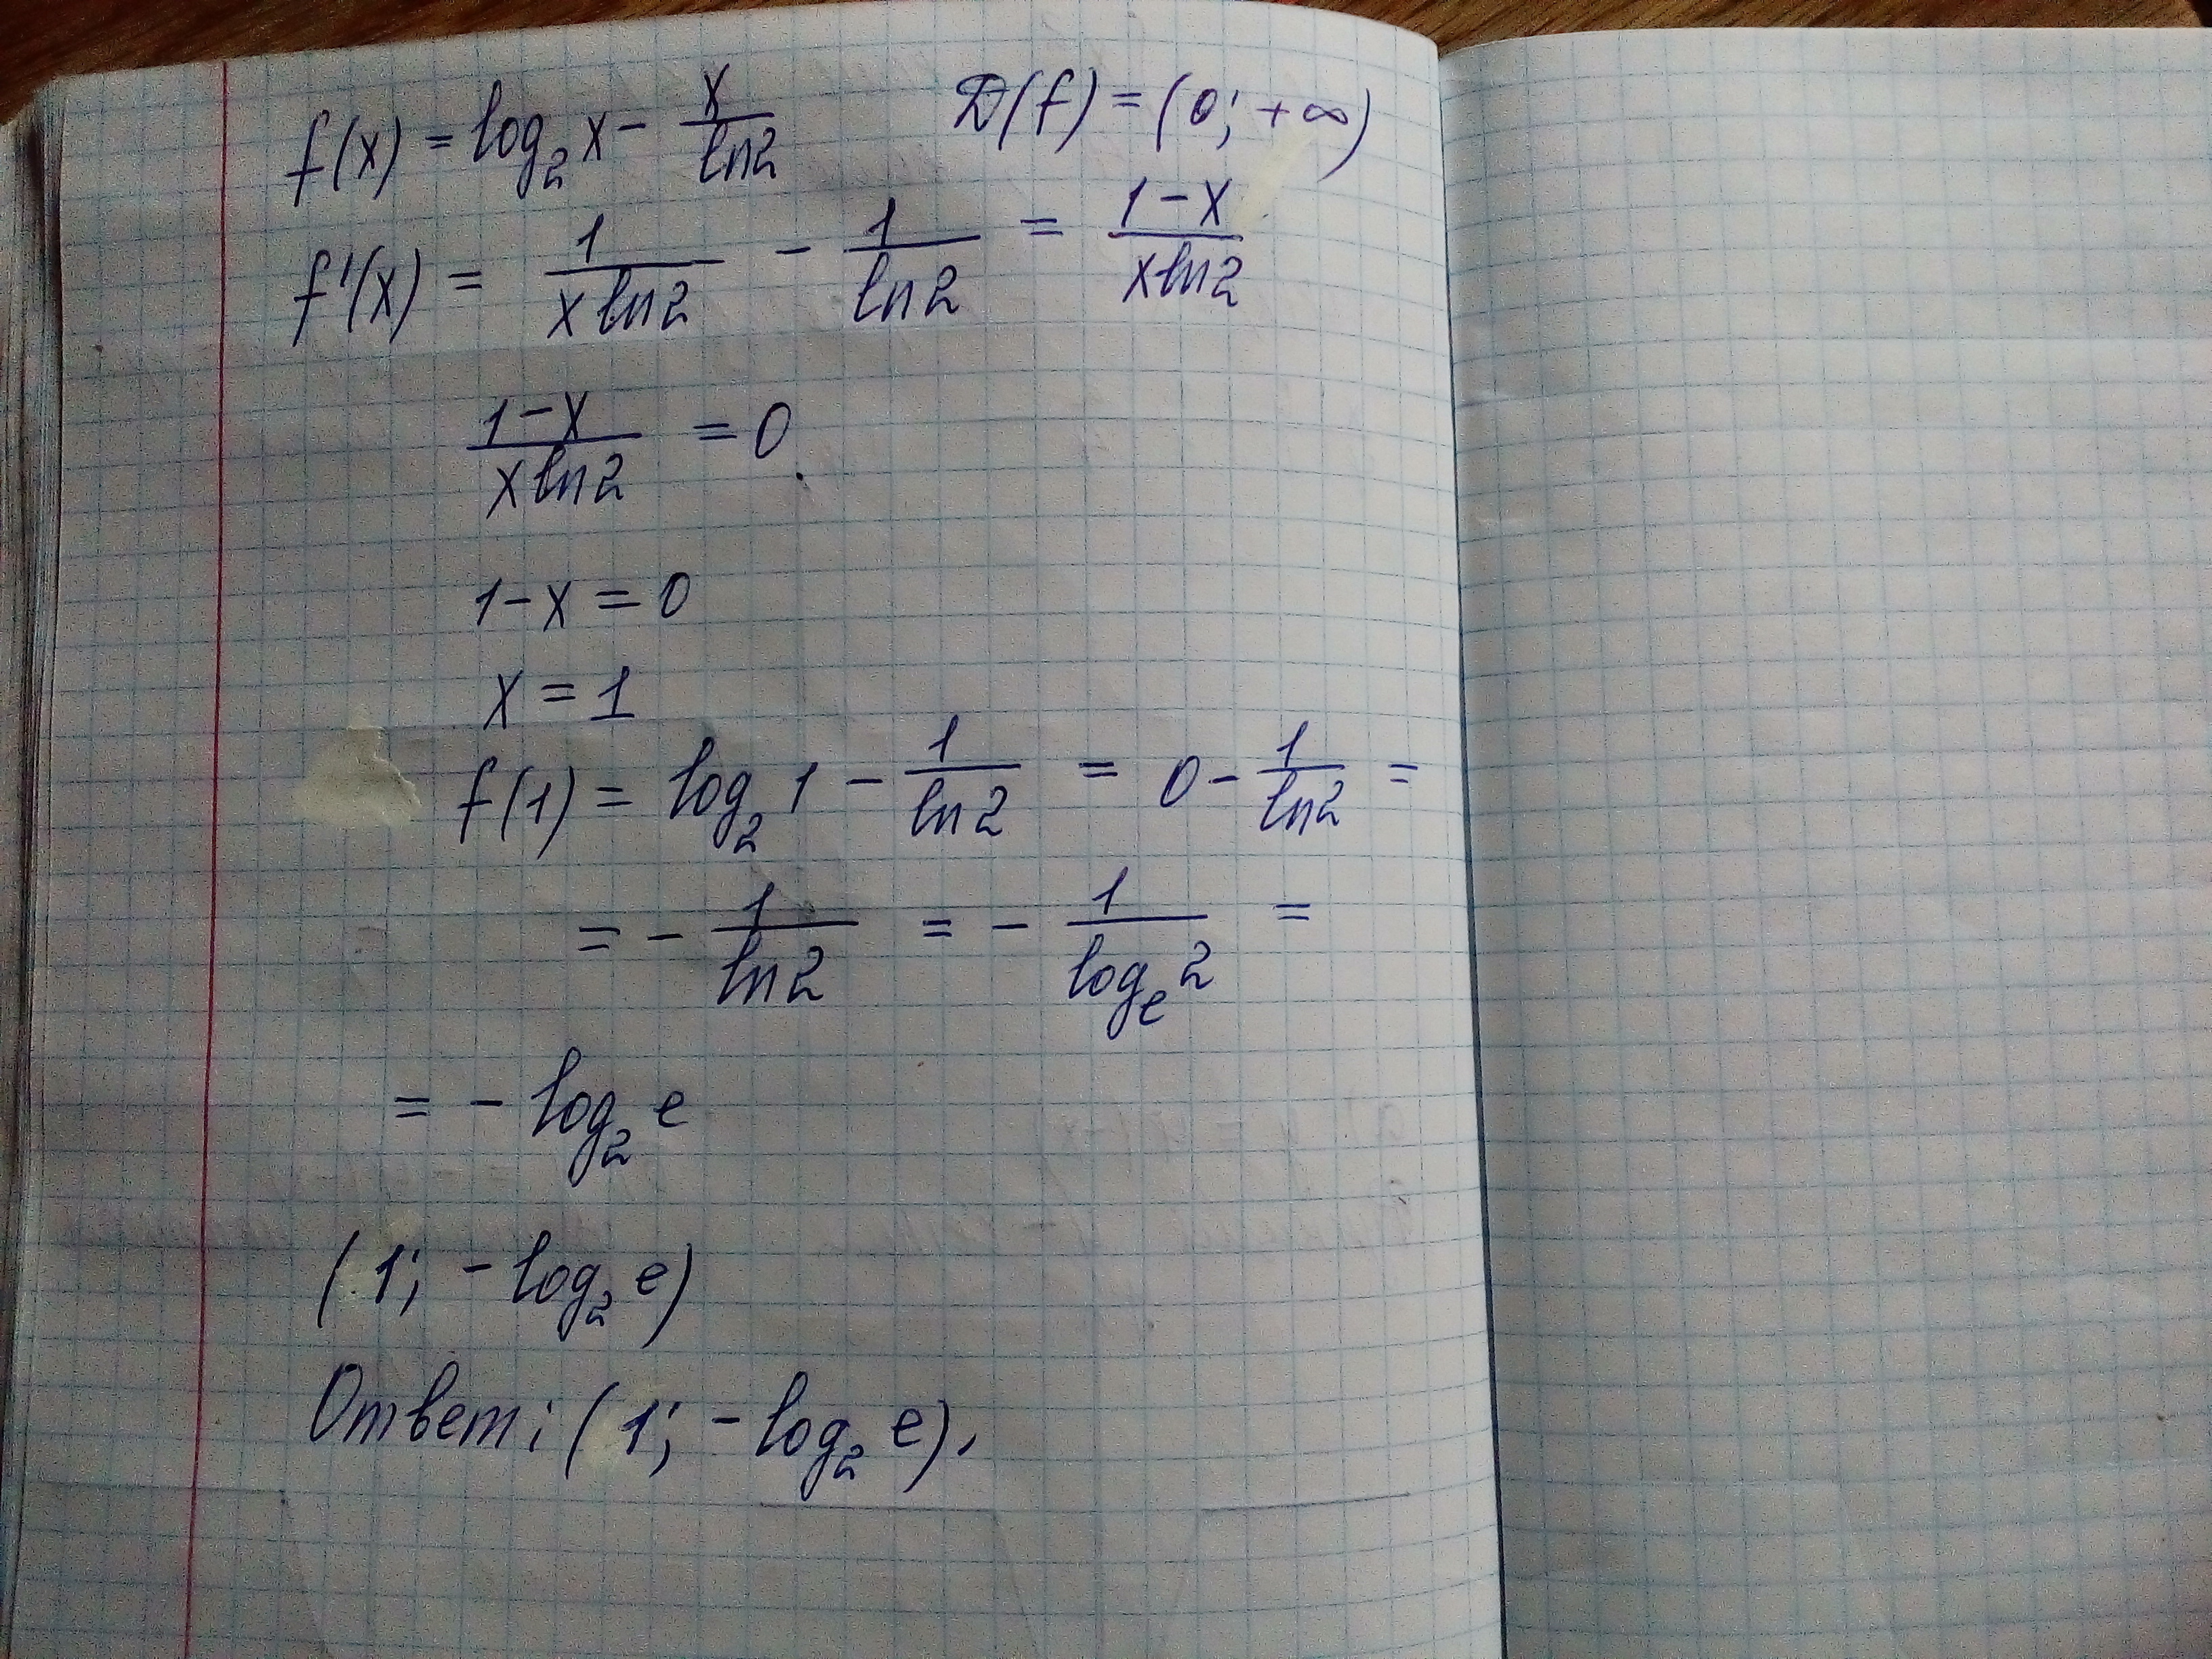 f(x) = log₂ x − x/ln2   D(f) = (0; +∞)
f'(x) = 1/(x ln2) − 1/ln2 = (1−x)/(x ln2)
(1−x)/(x ln2) = 0
1−x = 0
x = 1
f(1) = log₂ 1 − 1/ln2 = 0 − 1/ln2 =
= − 1/ln2 = − 1/logₑ 2 =
= − log₂ e
(1; − log₂ e)
Ответ: (1; − log₂ e).